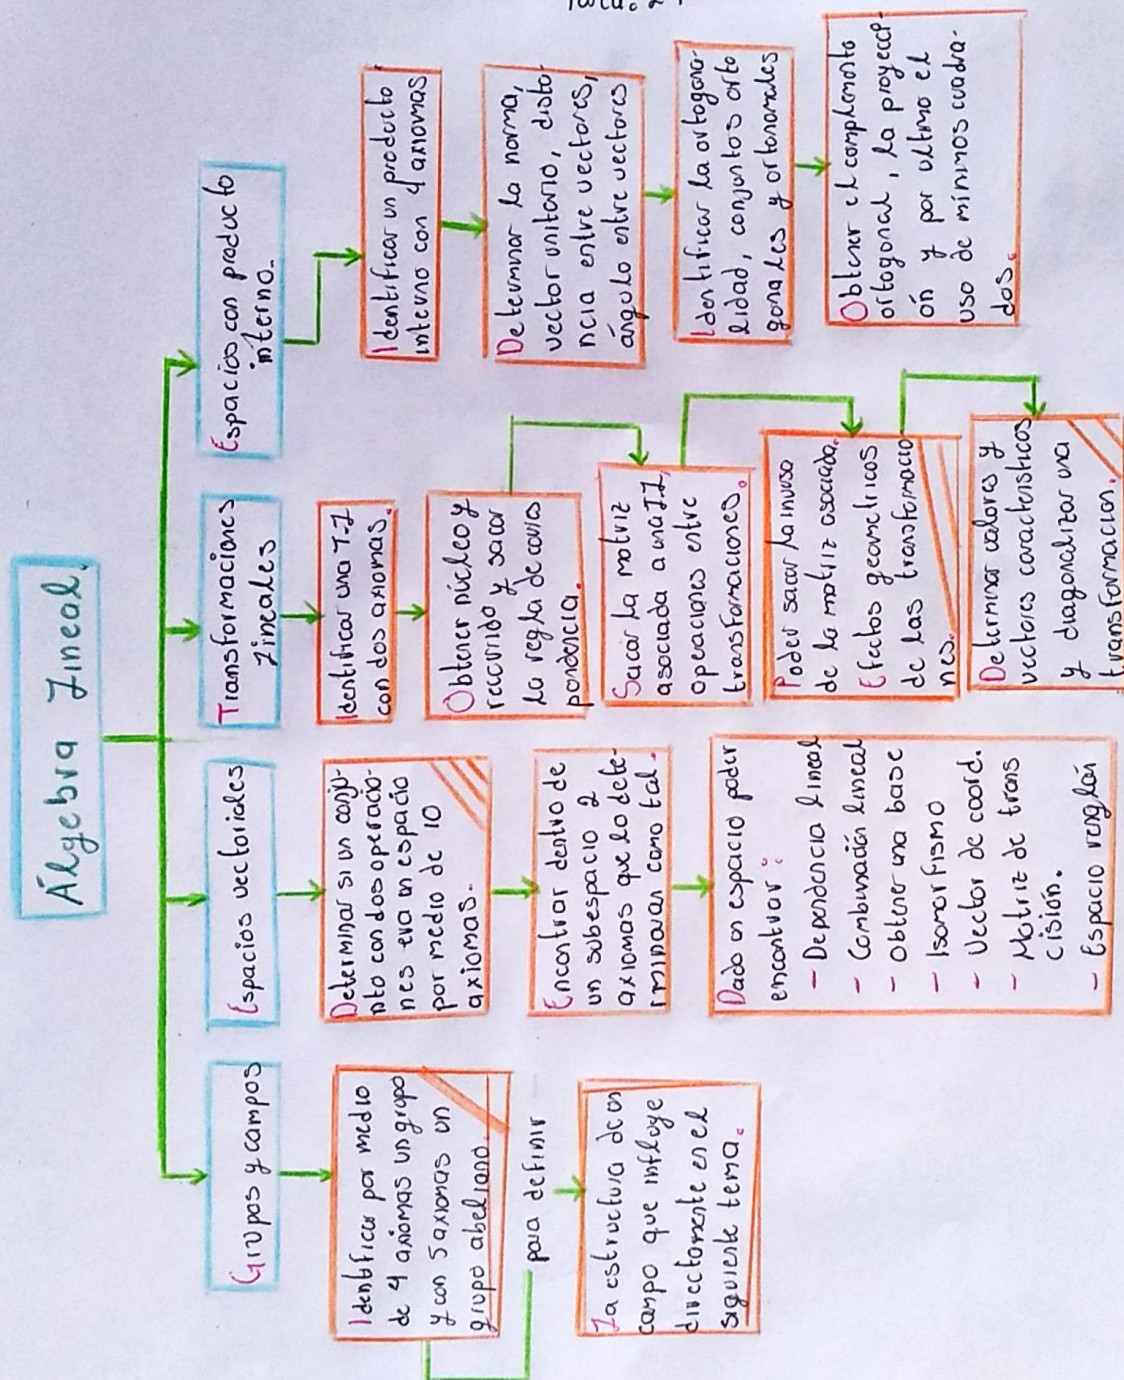 Álgebra Lineal.
Grupos y campos
Identificar por medio
de 4 axiomas un grupo
y con 5 axiomas un
grupo abeliano.
para definir
La estructura de un
campo que influye
directamente en el
siguiente tema.
Espacios vectoriales
Determinar si un conju-
nto con dos operacio-
nes eva un espacio
por medio de 10
axiomas.
Encontrar dentro de
un subespacio 2
axiomas que lo dete-
rminan como tal.
Dado un espacio poder
encontrar:
- Dependencia lineal
- Combinación lineal
- Obtener una base
- Isomorfismo
- Vector de coord.
- Matriz de trans
cisión.
- Espacio renglón
Transformaciones
Lineales
Identificar una T.L
con dos axiomas.
Obtener núcleo y
recorrido y sacar
la regla de corres
pondencia.
Sacar la matriz
asociada a una T.L,
operaciones entre
transformaciones.
Poder sacar la inversa
de la matriz asociada.
Efectos geometricos
de las transformacio
nes.
Determinar valores y
vectores caracteristicos
y diagonalizar una
transformacion.
Espacios con producto
interno.
Identificar un producto
interno con 4 axiomas
Determinar la norma,
vector unitario, dista-
ncia entre vectores,
ángulo entre vectores
Identificar la ortogona-
lidad, conjuntos orto
gonales y ortonormales
Obtener el complemento
ortogonal, la proyecci-
ón y por ultimo el
uso de mínimos cuadra-
dos.